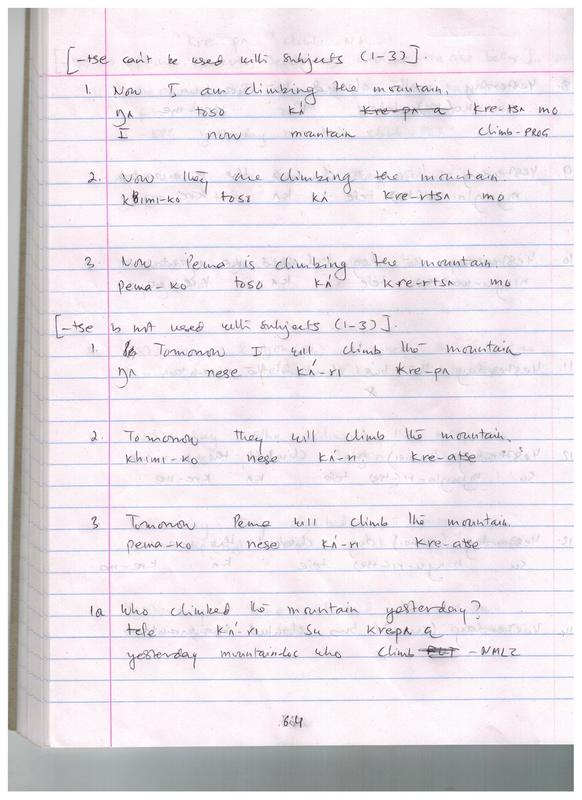 [-tse can't be used with subjects (1-3)].
1. Now I am climbing the mountain.
ŋʌ toso kʌ́ kre-pʌ a kre-tsʌ mo
I now mountain climb-PROG
2. Now they are climbing the mountain.
khimi-ko toso kʌ́ kre-rtsʌ mo
3. Now Pema is climbing the mountain.
Pema-ko toso kʌ́ kre-rtsʌ mo
[-tse is not used with subjects (1-3)].
1. Tomorrow I will climb the mountain
ŋʌ nese kʌ́-ri kre-pʌ
2. Tomorrow they will climb the mountain.
khimi-ko nese kʌ́-ri kre-atse
3. Tomorrow Pema will climb the mountain.
pema-ko nese kʌ́-ri kre-atse
1a Who climbed the mountain yesterday?
tele kʌ́-ri su krepʌ a
yesterday mountain-loc who climb -NMLZ
64